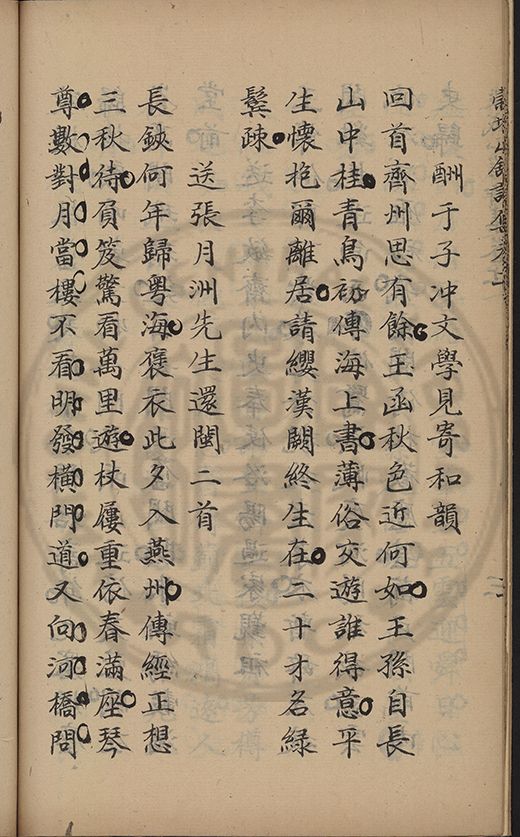 酬于子冲文學見寄和韻
回首齊州思有餘玉函秋色近何如王孫自長
山中桂青鳥初傳海上書薄俗交遊誰得意平
生懷抱爾離居請纓漢闕終生在二十才名綠
鬓疎
送張月洲先生還閩二首
長鋏何年歸粵海褒衣此夕入燕州傳經正想
三秋待負笈驚看萬里遊杖屨重依春滿座琴
尊數對月當樓不看明發橫門道又向河橋問